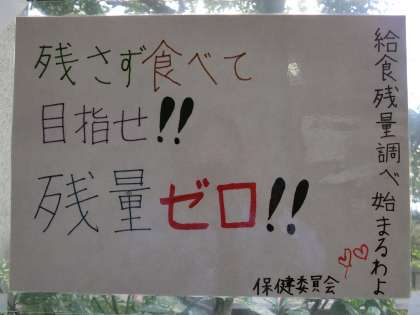 給食残量調べ始まるわよ
残さず食べて
目指せ!!
残量ゼロ!!
保健委員会